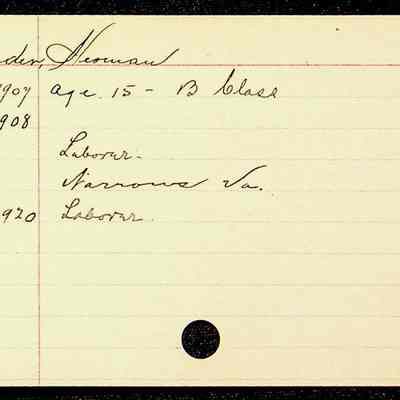 den, Herman
1907 age 15 - B Class
1908
Laborer.
Narrows Va.
1920 Laborer.